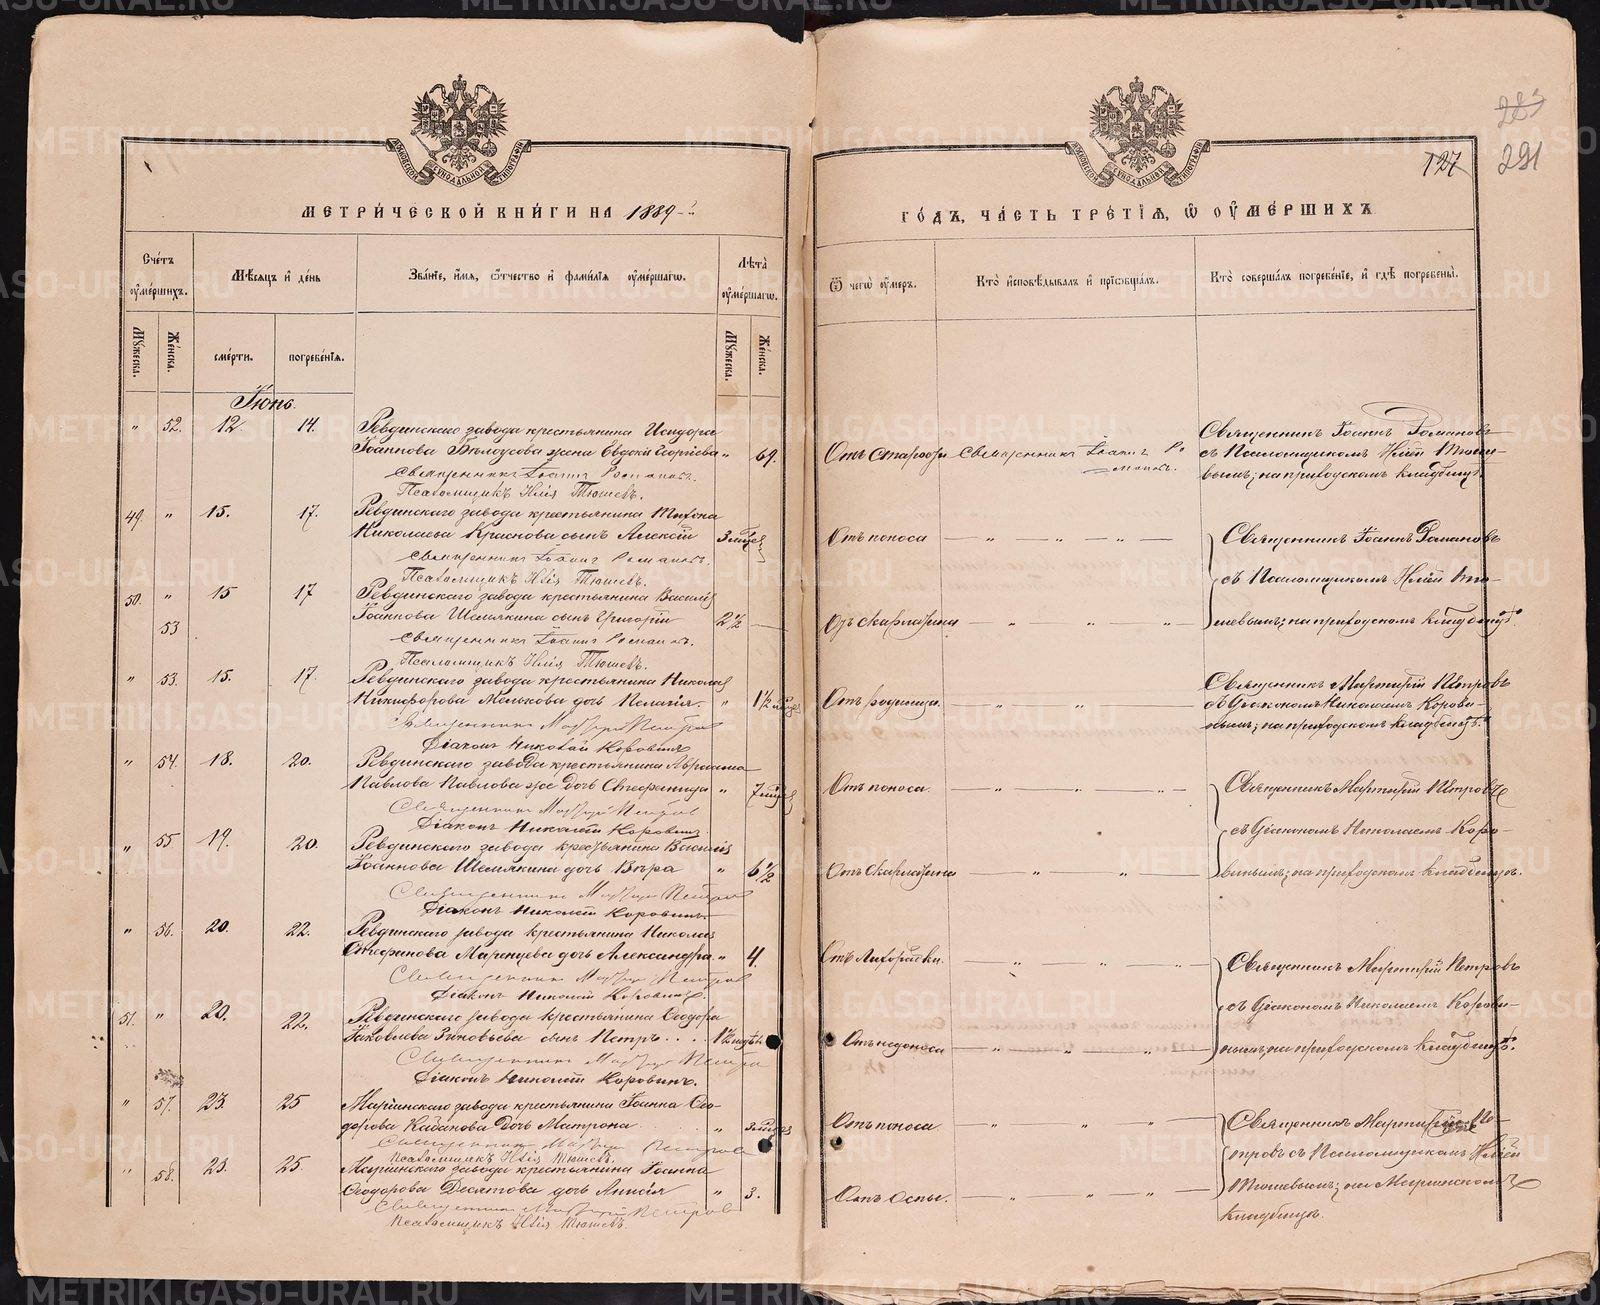 МЕТРИЧЕСКОЙ КНИГИ НА 1889
Счетъ оумершихъ.
Мѣсяцъ и день
Званіе, имя, отчество и фамилія оумершагѡ.
Лѣта оумершагѡ.
Мужеска.
Женска.
смерти.
погребенія.
Мужеска.
Женска.
Іюнь.
" 52. 12. 14. Ревдинскаго завода крестьянина Исидора
Іоаннова Белоусова жена Евдокія Георгіева " 69.
Священникъ Іоаннъ Романовъ.
Псаломщикъ Илія Тюшевъ.
49. " 15. 17. Ревдинскаго завода крестьянина Тихона
Николаева Краснова сынъ Алексій 3 мѣсе
Священникъ Іоаннъ Романовъ.
Псаломщикъ Илія Тюшевъ.
50. " 15 17 Ревдинскаго завода крестьянина Василія
53 Іоаннова Шелякина сынъ Григорій 2 1/2 —
Священникъ Іоаннъ Романовъ.
Псаломщикъ Илія Тюшевъ.
" 53. 15. 17. Ревдинскаго завода крестьянина Николая
Никифорова Мелькова дочь Пелагія. " 1 1/2
Священникъ Мартирій Петровъ
Діаконъ Николай Коровинъ
" 54. 18. 20. Ревдинскаго завода крестьянина Авраама
Павлова Павлова же дочь Стефанида " 7
Священникъ Мартирій Петровъ
Діаконъ Николай Коровинъ.
" 55 19. 20. Ревдинскаго завода крестьянина Василія
Іоаннова Шелякина дочь Вѣра " 6 1/2
Священникъ Мартирій Петровъ
Діаконъ Николай Коровинъ.
" 56. 20. 22. Ревдинскаго завода крестьянина Николая
Стефанова Маренцева дочь Александра. " 4.
Священникъ Мартирій Петровъ
Діаконъ Николай Коровинъ.
51. " 20. 22. Ревдинскаго завода крестьянина Ѳеодора
Іаковлева Зиновьева сынъ Петръ . . . .
Священникъ Мартирій Петровъ
Діаконъ Николай Коровинъ.
" 57. 23. 25 Маріинскаго завода крестьянина Іоанна Ѳео-
дорова Кабанова дочь Матрона "
Священникъ Мартирій Петровъ
Псаломщикъ Илія Тюшевъ.
" 58. 23. 25. Маріинскаго завода крестьянина Іоанна
Ѳеодорова Десятова дочь Анисія " 3.
Священникъ Мартирій Петровъ
Псаломщикъ Илія Тюшевъ.
283
127 291
ГОДЪ, ЧАСТЬ ТРЕТІЯ, Ѡ ОУМЕРШИХЪ
Ѿ чегѡ оумеръ.
Кто исповѣдывалъ и пріобщалъ.
Кто совершалъ погребеніе, и гдѣ погребены.
Отъ старости Священникъ Іоаннъ Ро-
мановъ.
Священникъ Іоаннъ Романовъ
съ Псаломщикомъ Иліей Тюше-
вымъ; на приходскомъ кладбищѣ.
Отъ поноса — " — " — " —
Священникъ Іоаннъ Романовъ
съ Псаломщикомъ Иліей Тю-
Отъ скарлатины — " — " — " —
шевымъ; на приходскомъ кладбищѣ.
Отъ родимца. — " — " —
Священникъ Мартирій Петровъ
съ Діакономъ Николаемъ Корови-
нымъ; на приходскомъ кладбищѣ.
Отъ поноса. — " — " — " —
Священникъ Мартирій Петровъ
съ Діакономъ Николаемъ Коро-
Отъ скарлатины — " — " —
винымъ; на приходскомъ кладбищѣ.
Отъ лихорадки. — " — " — " —
Священникъ Мартирій Петровъ
съ Діакономъ Николаемъ Корови-
Отъ недоноса — " — " — " —
нымъ; на приходскомъ кладбищѣ.
Отъ поноса — " — " — " —
Священникъ Мартирій Пе-
тровъ съ Псаломщикомъ Иліей
Отъ оспы. — " — " — " —
Тюшевымъ; на Маріинскомъ
кладбищѣ.
METRIKI.GASO-URAL.RU